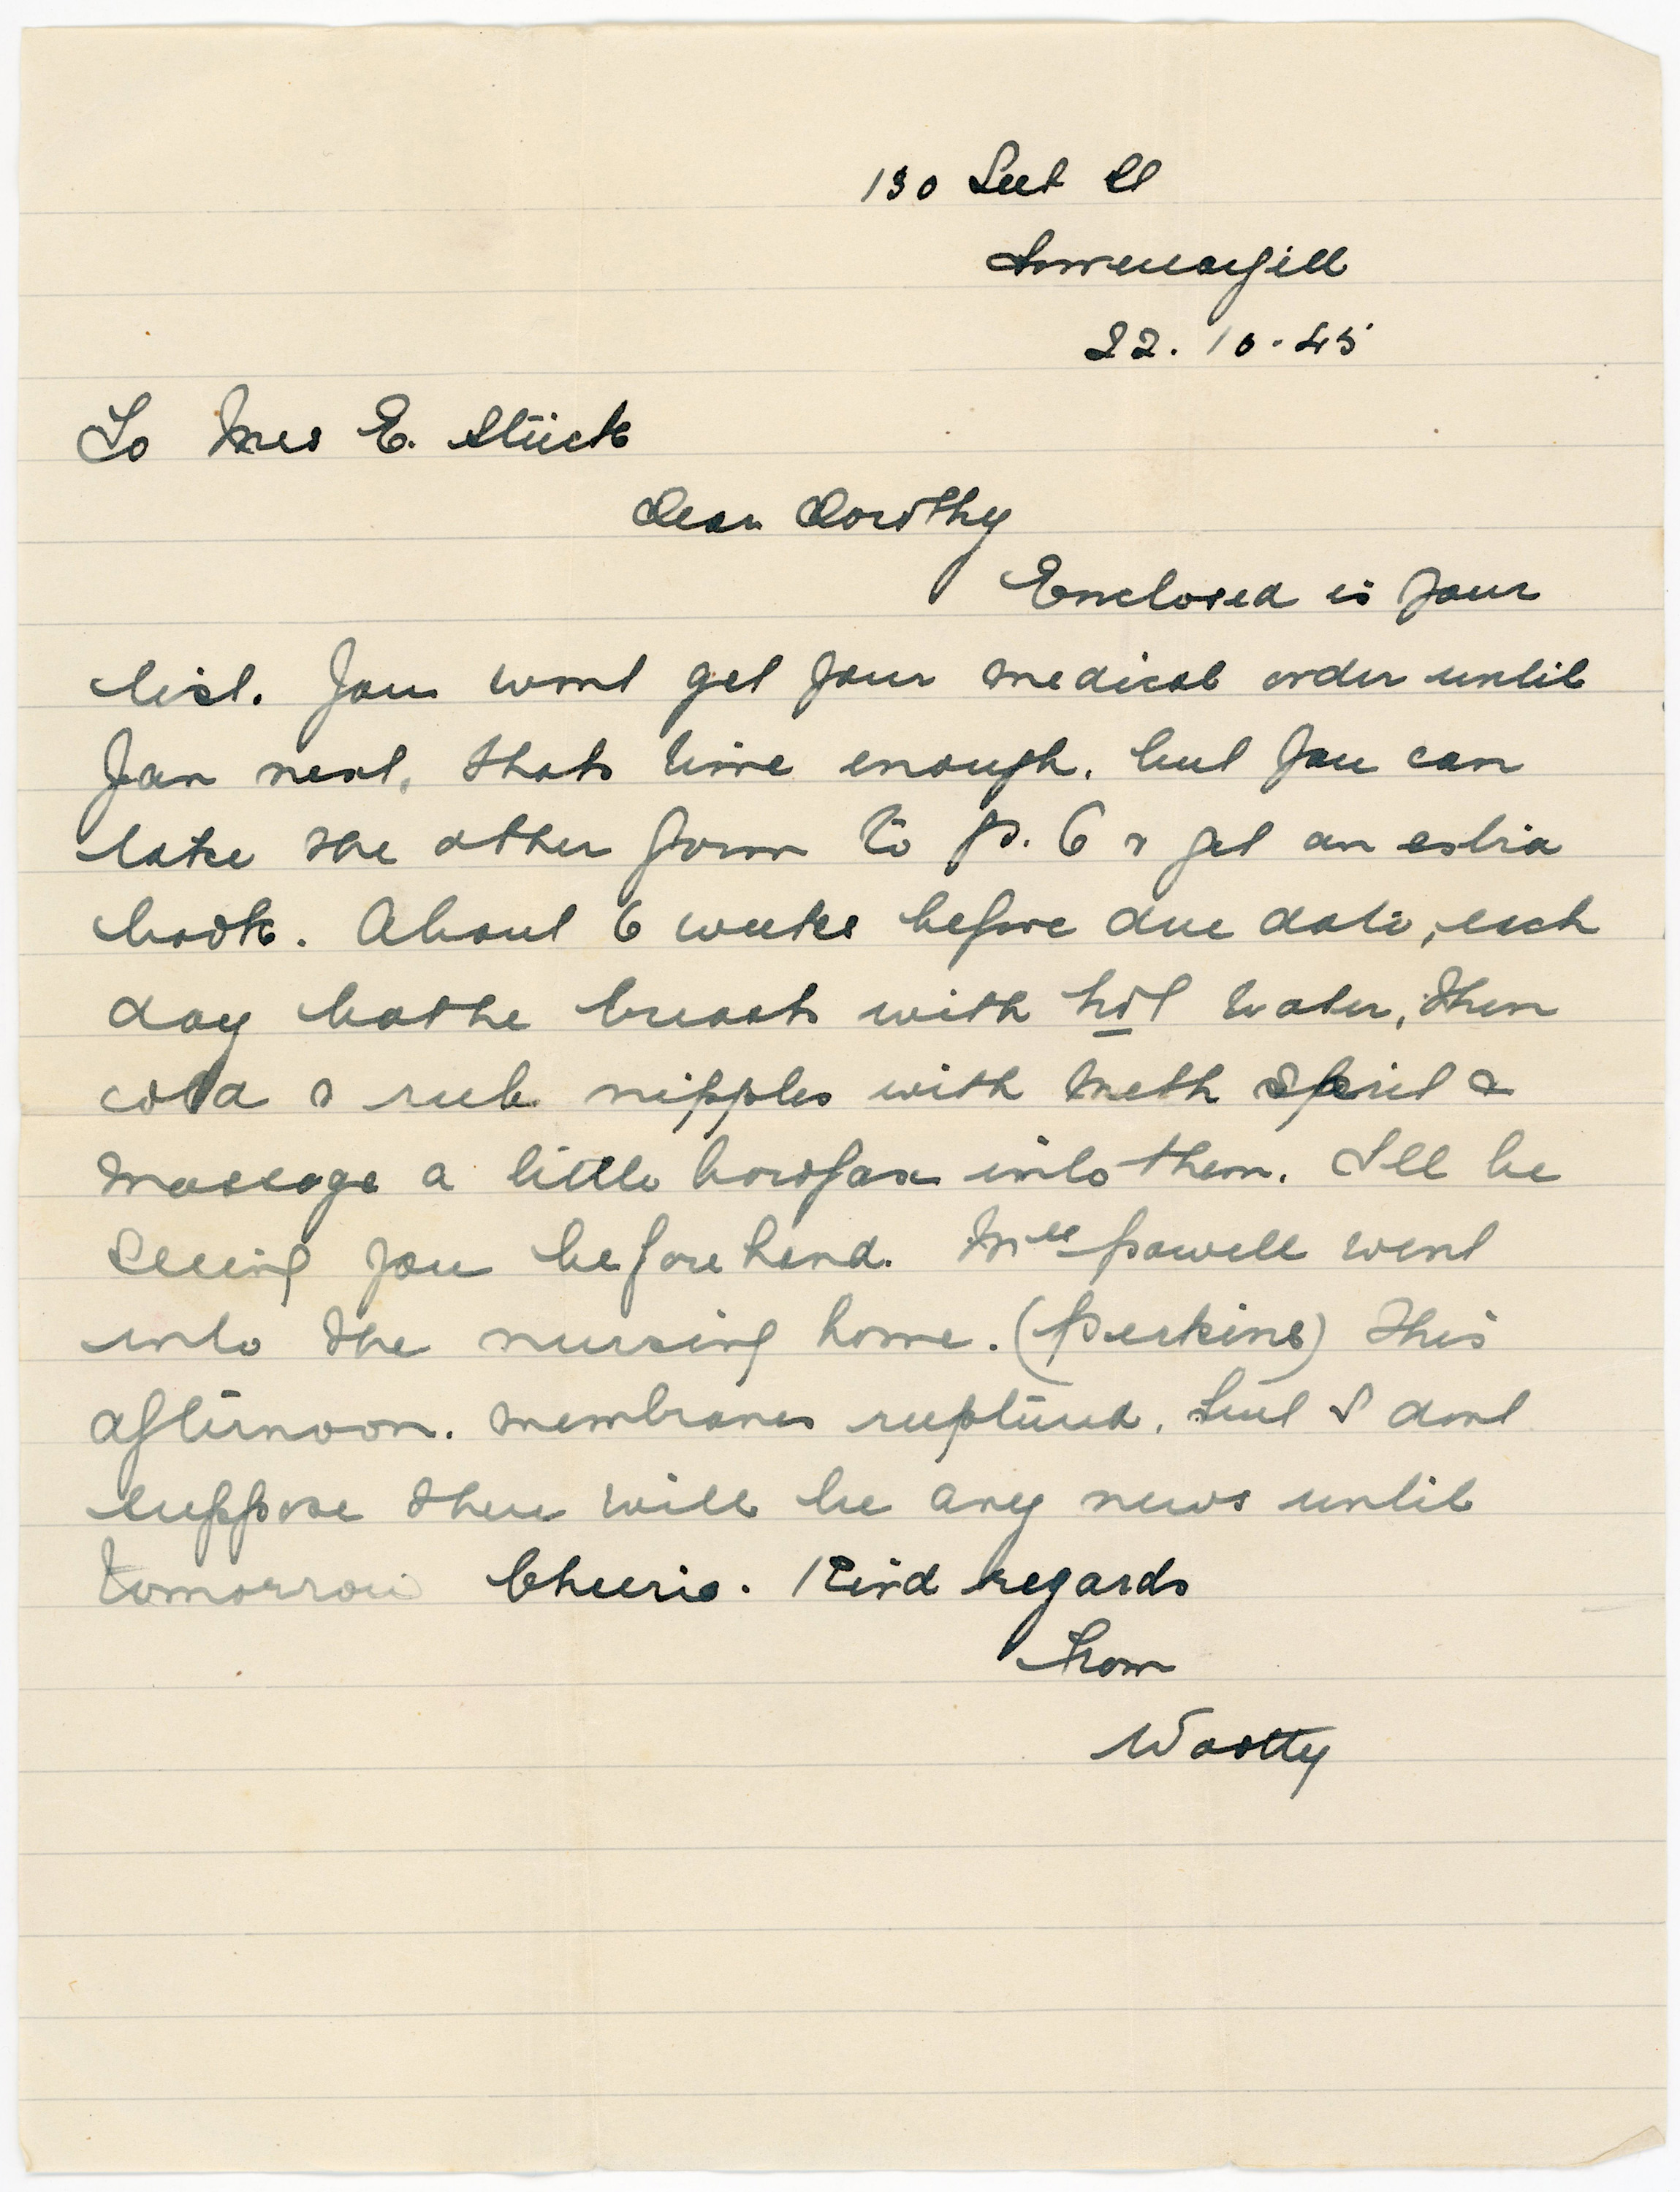 130 Leet St
Invercargill
22.10.45
To Mrs E. Stuck
Dear Dorothy
Enclosed is your
list. You wont get your medical order until
Jan next, thats time enough, but you can
take the other form to P. O & get an extra
book. About 6 weeks before due date, each
day bathe breasts with hot water, then
cold & rub nipples with Meth Spirit &
massage a little borofax into them. I'll be
seeing you before hand. Mrs Powell went
into the nursing home. (Perkins) this
afternoon. Membranes ruptured, but I dont
suppose there will be any news until
tomorrow Cheerio. Kind regards
from
Wootty